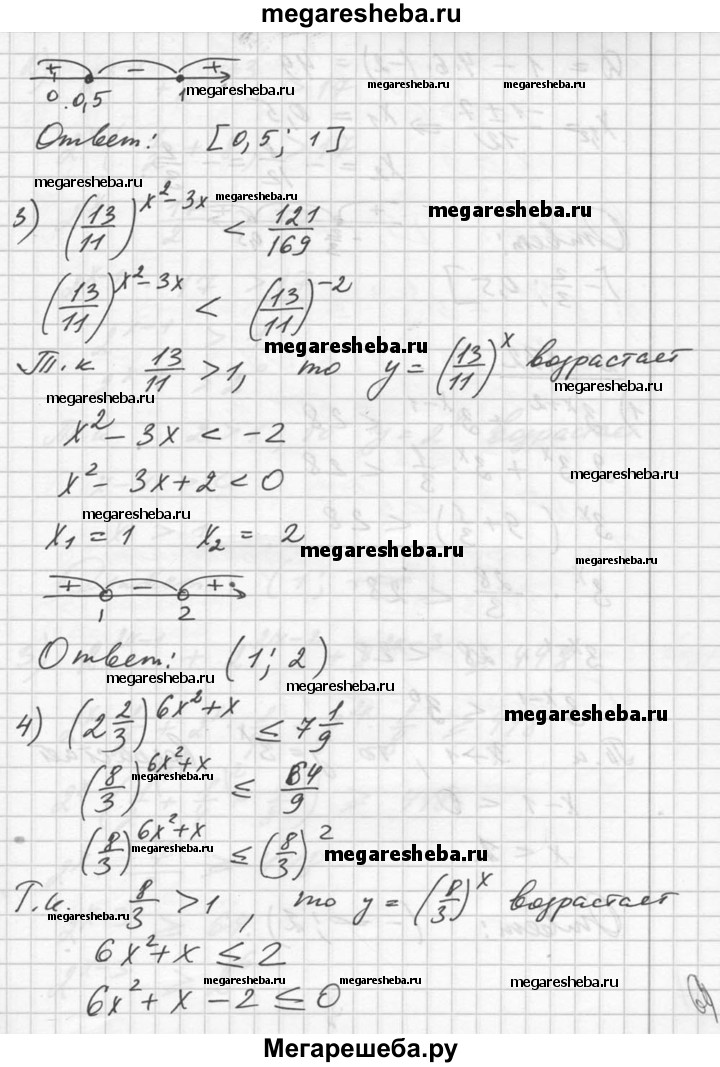 megaresheba.ru
+ − +
0 0,5 1 megaresheba.ru megaresheba.ru megaresheba.ru
Ответ: [0,5; 1]
megaresheba.ru megaresheba.ru megaresheba.ru
3) (13/11)^(x²−3x) < 121/169
(13/11)^(x²−3x) < (13/11)^(−2)
megaresheba.ru
Т.к 13/11 > 1, то y = (13/11)^x возрастает
megaresheba.ru megaresheba.ru
x² − 3x < −2
x² − 3x + 2 < 0 megaresheba.ru
megaresheba.ru
x₁ = 1 x₂ = 2 megaresheba.ru
+ − +
1 2
Ответ: (1; 2)
megaresheba.ru megaresheba.ru
4) (2 2/3)^(6x²+x) ≤ 7 1/9 megaresheba.ru
(8/3)^(6x²+x) ≤ 64/9
megaresheba.ru
(8/3)^(6x²+x) ≤ (8/3)² megaresheba.ru
megaresheba.ru
Т.к. 8/3 > 1, то y = (8/3)^x возрастает
megaresheba.ru megaresheba.ru
6x² + x ≤ 2
megaresheba.ru megaresheba.ru megaresheba.ru
6x² + x − 2 ≤ 0
Мегарешеба.ру